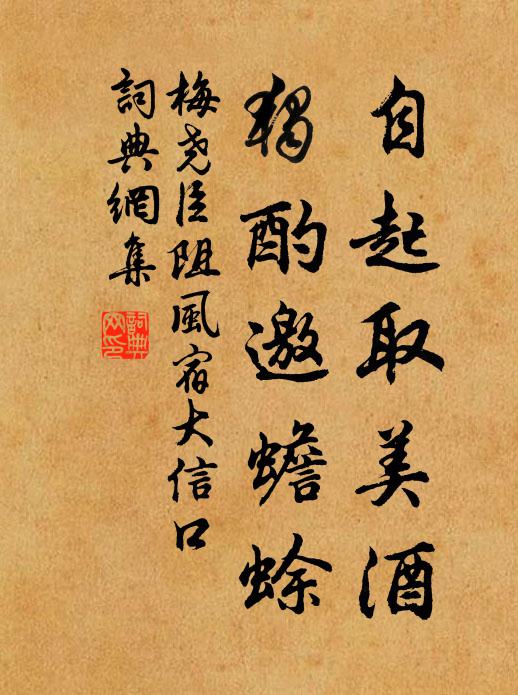 自起取美酒
獨酌邀蟾蜍
梅堯臣阻風宿大信口
詞典網集
詞典網印